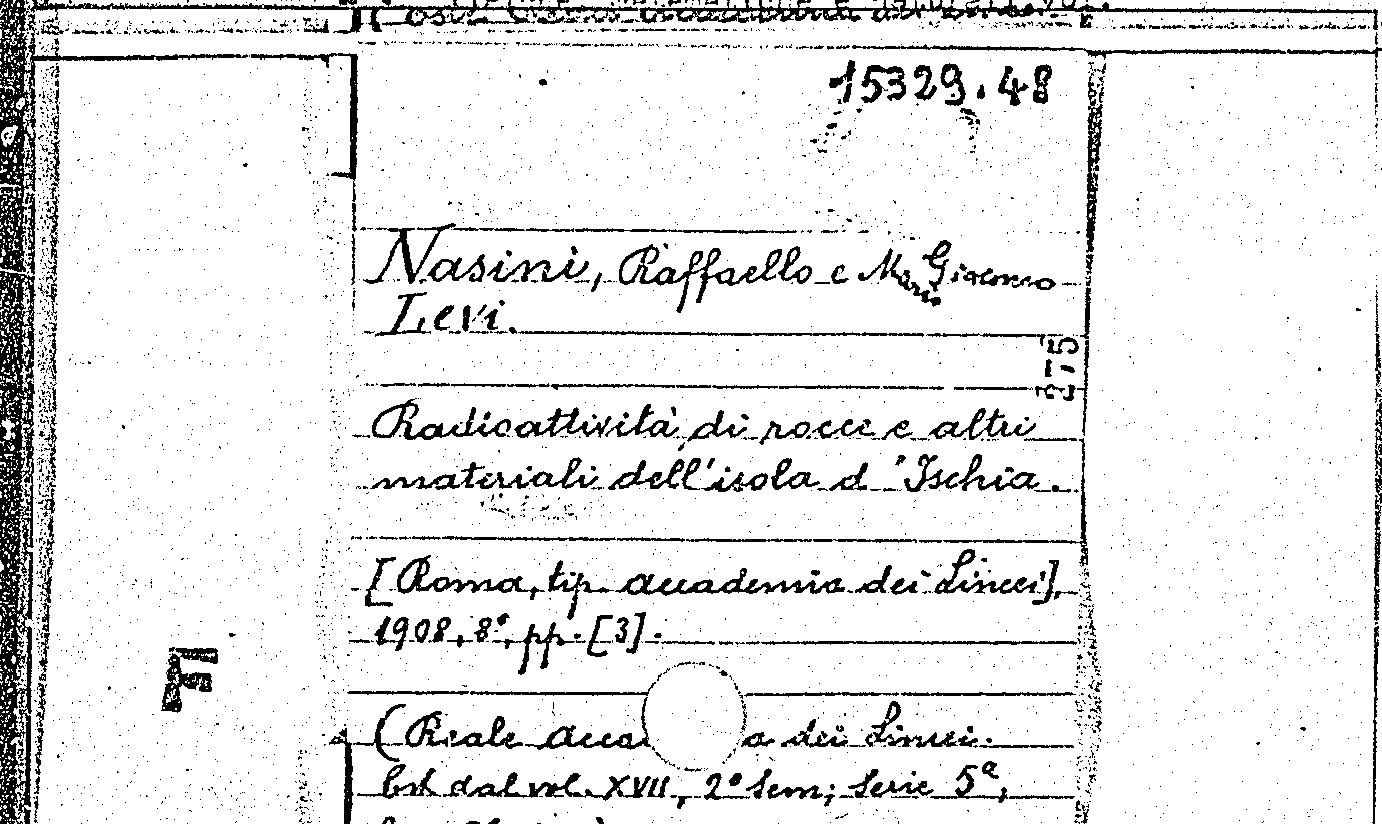 15329.48
Nasini, Raffaello e Mario Giacomo
Levi.
275
Radioattività di rocce e altri
materiali dell'isola d'Ischia.
[Roma, tip. accademia dei Lincei],
1908, 8°, pp. [3].
F
(Reale acca a dei Lincei.
Est. dal vol. XVII, 2° Sem; Serie 5ª,